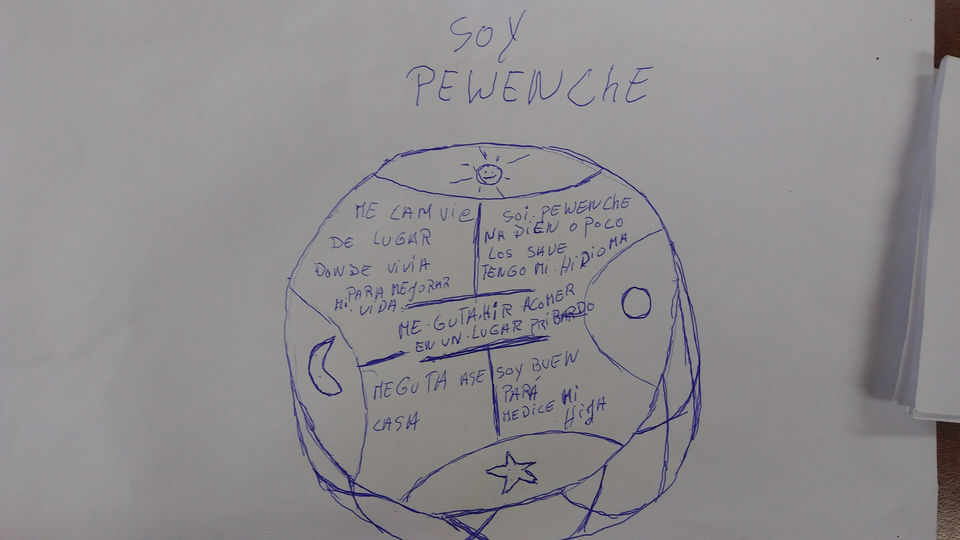 SOY
PEWENChE
ME CAMVie
DE LUGAR
DONDE VIVIA
PARA MEJORAR
Mi VIDA.
SOi. PEWENChE
NADIEN O POCO
LOS SAVE
TENGO Mi. HIDIOMA
ME. GUTA. HIR ACOMER
EN UN. LUGAR PRIBARDO
ME GUTA ASE
CASA
SOY BUEN
PARÁ
MEDICE Mi
HIJA